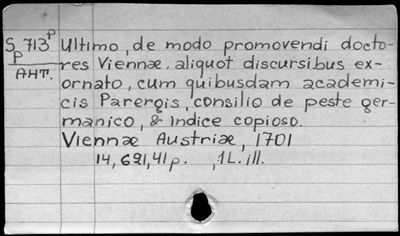 S 713 P Ultimo, de modo promovendi docto-
P res Viennæ. aliquot discursibus ex-
AHT. ornato, cum quibusdam academi-
cis Parergis, consilio de peste ger-
manico, & indice copioso.
Viennæ Austriæ, 1701
14, 691, 41 p. , 1 L. ill.